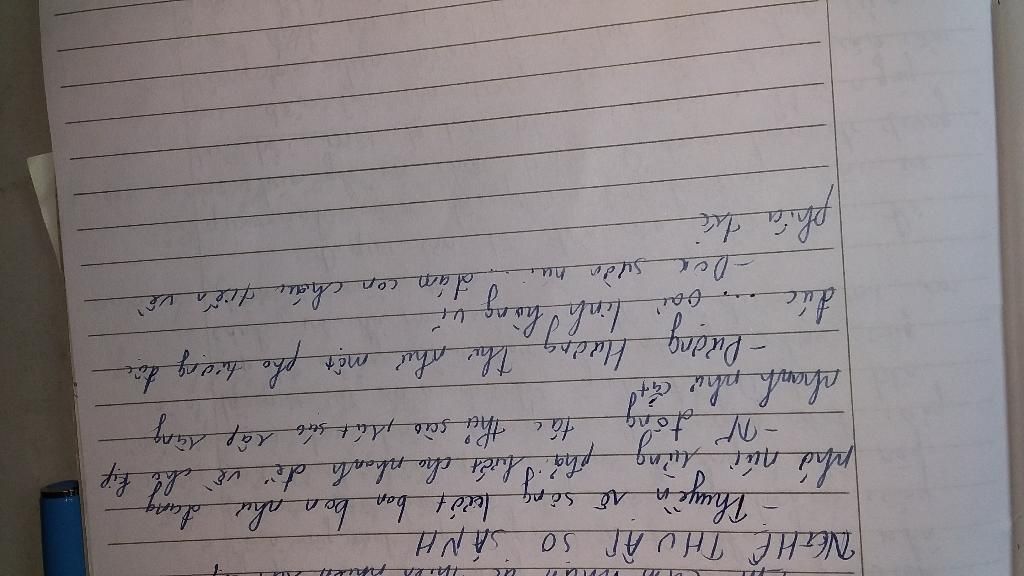 NGHỆ THUẬT SO SÁNH
- Thuyền rẽ sóng lướt bon bon như đang
nhớ núi rừng phải lướt cho nhanh để về cho kịp
- N~ động tác thả sào, rút sào rập ràng
nhanh như cắt
- Dượng Hương Thư như một pho tượng đồng
đúc ... oai linh hùng vĩ
- Dọc sườn núi ... đám con cháu tiến về
phía trước